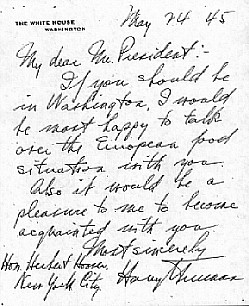 THE WHITE HOUSE
WASHINGTON
May 24 45
My dear Mr. President:-
If you should be
in Washington, I would
be most happy to talk
over the European food
situation with you.
Also it would be a
pleasure to me to become
acquainted with you.
Most sincerely
Hon. Herbert Hoover
New York City. Harry Truman